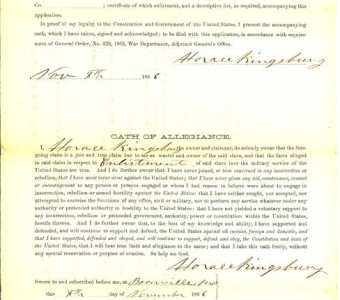 Co. ; certificate of which enlistment, and a descriptive list, as required, accompanying this
application.
In proof of my loyalty to the Constitution and Government of the United States, I present the accompanying
oath, which I have taken, signed and acknowledged; to be filed with this application, in accordance with requirement
of General Order, No. 329, 1863, War Department, Adjutant General's Office.
Horace Kingsbury
Nov 8th 1866
OATH OF ALLEGIANCE.
I, Horace Kingsbury owner and claimant, do solemnly swear that the foregoing
claim is a just and true claim due to me as master and owner of the said slave, and that the facts alleged
in said claim in respect to Enlistment of said slave into the military service of the
United States are true. And I do further swear that I have never joined, or been concerned in any insurrection or
rebellion; that I have never borne arms against the United States; that I have never given any aid, countenance, counsel
or encouragement to any person or persons engaged or whom I had reason to believe were about to engage in
insurrection, rebellion or armed hostility against the United States; that I have neither sought, nor accepted, nor
attempted to exercise the functions of any office, civil or military, nor to perform any service whatever under any
authority or pretended authority in hostility to the United States; that I have not yielded a voluntary support to
any insurrection, rebellion or pretended government, authority, power or constitution within the United States,
hostile thereto. And I do further swear that, to the best of my knowledge and ability, I have supported and
defended, and will continue to support and defend, the United States against all enemies, foreign and domestic, that
that I have supported, defended and obeyed, and will continue to support, defend and obey, the Constitution and laws of
the United States, that I will bear true faith and allegiance to the same; and that I take this oath freely, without
any special reservation or purpose of evasion. So help me God.
Horace Kingsbury
Sworn to and subscribed before me, at Boonville Mo
this 8th day of November 1866